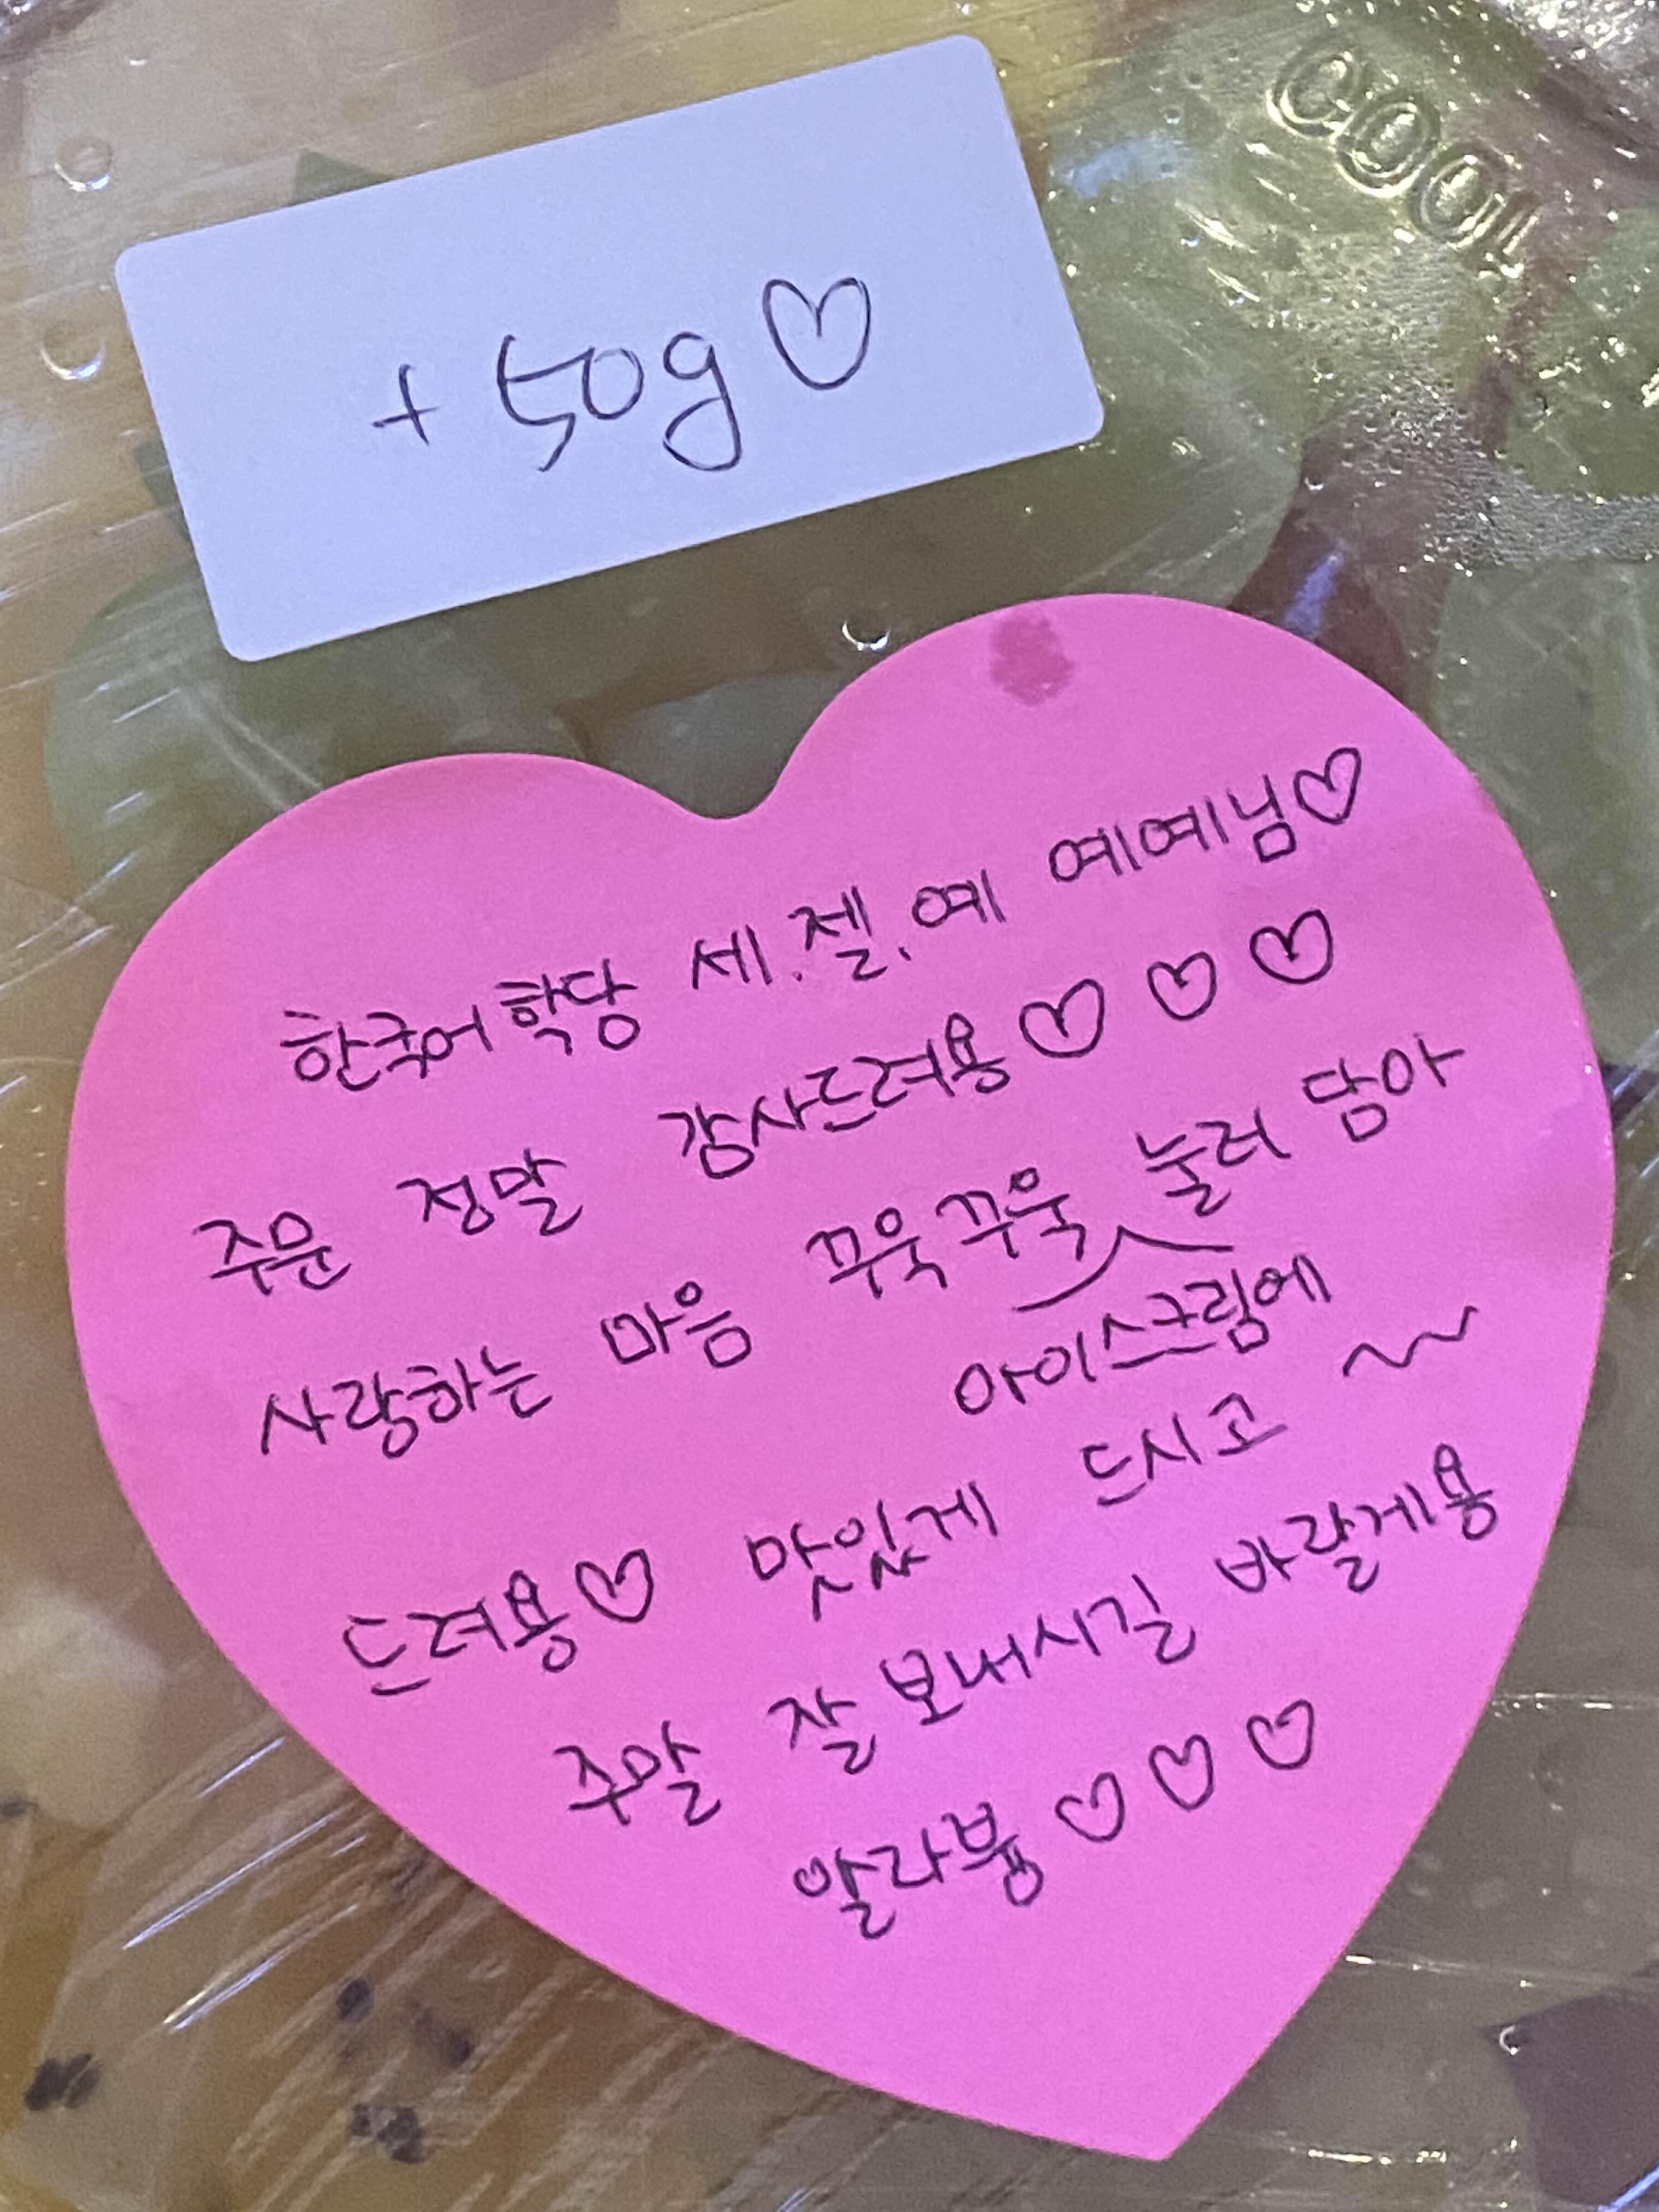 COOL
+50g♡
한국어학당 세.젤.예 예예님♡
주문 정말 감사드려용♡♡♡
사랑하는 마음 꾸욱꾸욱 눌러 담아
아이스크림에
드려용♡ 맛있게 드시고 ~~
주말 잘 보내시길 바랄게용
알라붕♡♡♡